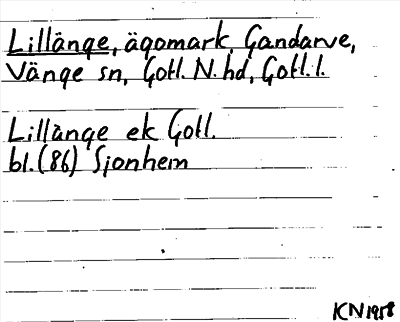 Lillänge, ägomark, Gandarve,
Vänge sn, Gotl. N. hd, Gotl. l.
Lillänge ek Gotl.
bl. (86) Sjonhem
KN 1958